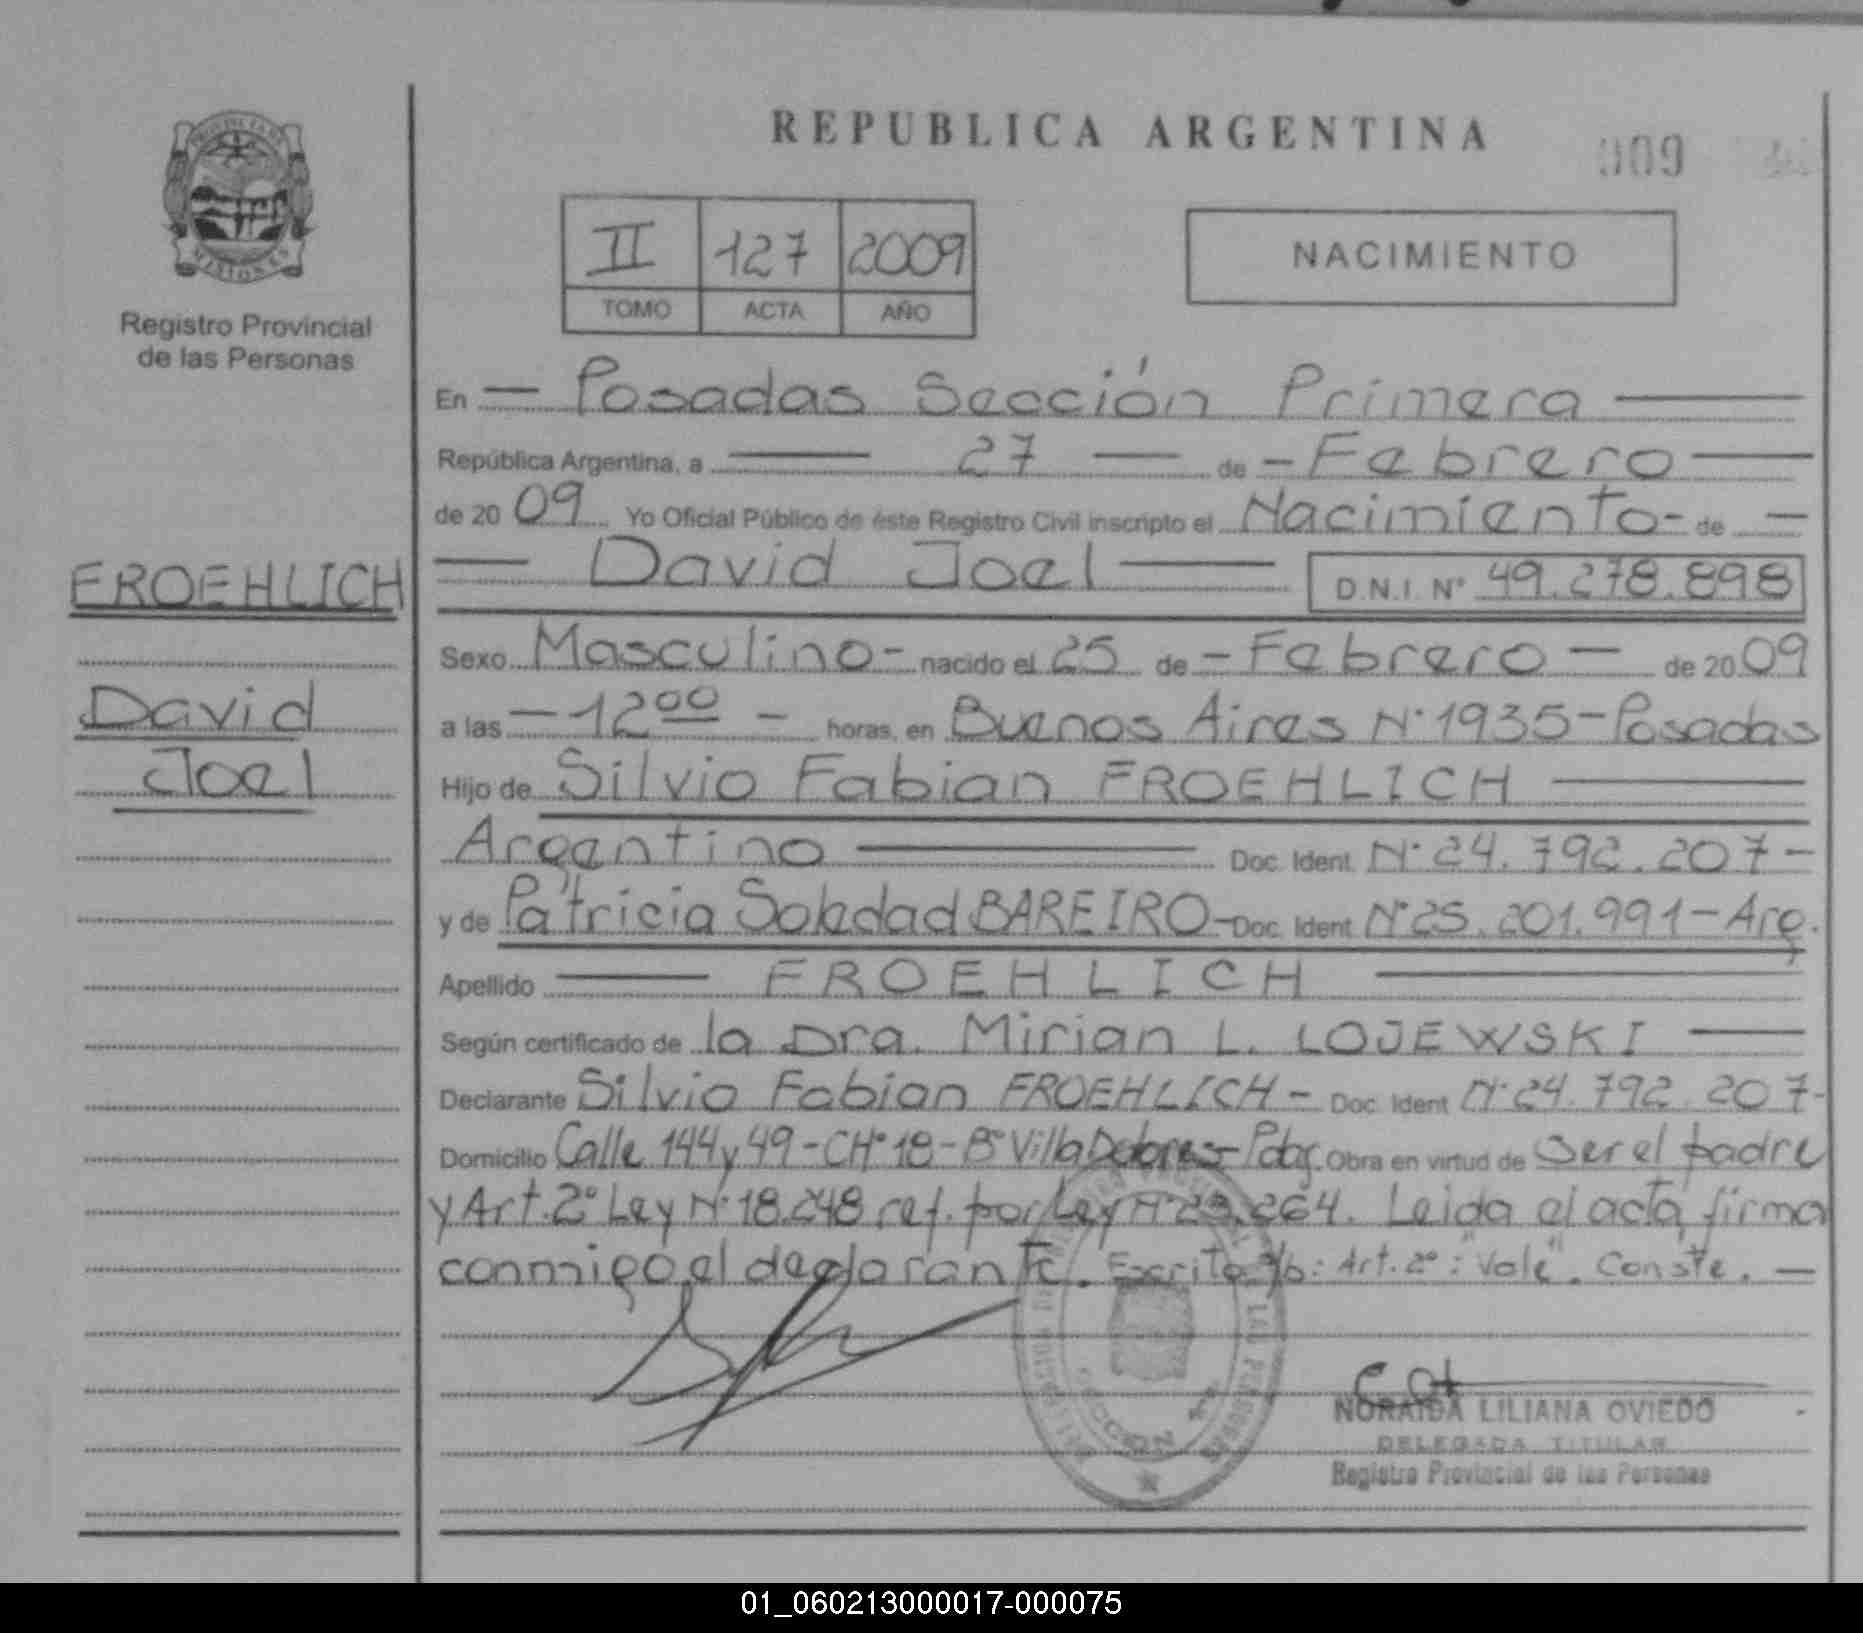 REPUBLICA ARGENTINA
009
PROVINCIA DE
MISIONES
Registro Provincial
de las Personas
II 127 2009
TOMO ACTA AÑO
NACIMIENTO
En — Posadas Sección Primera —
República Argentina, a — 27 — de – Febrero —
de 2009 Yo Oficial Público de éste Registro Civil inscripto el Nacimiento - de —
— David Joel — D.N.I. N° 49.278.898
FROEHLICH
David
Joel
Sexo Masculino - nacido el 25 de - Febrero — de 2009
a las — 12 00 – horas, en Buenos Aires N° 1935 - Posadas
Hijo de Silvio Fabian FROEHLICH —
Argentino — Doc. Ident. N° 24.792.207 -
y de Patricia Soledad BAREIRO - Doc. Ident N° 25.201.991 - Arg.
Apellido — FROEHLICH —
Según certificado de la Dra. Mirian L. LOJEWSKI —
Declarante Silvio Fabian FROEHLICH - Doc. Ident N° 24.792.207 -
Domicilio Calle 144 y 49 - CH° 18 - B° Villa Dolores - Pdas. Obra en virtud de Ser el padre
y Art. 2° Ley N° 18.248 ref. por Ley N° 23.264. Leida el acta, firma
conmigo el declarante. Escrito s/b: Art. 2°: "Vale". Conste. —
NORAIDA LILIANA OVIEDO
DELEGADA TITULAR
Registro Provincial de las Personas
01_060213000017-000075